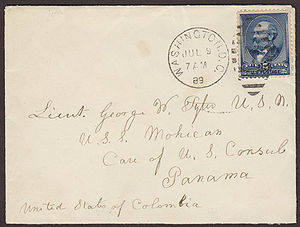 WASHINGTON, D.C.
JUL 9
7 AM
89
Lieut. George W. Tyler U. S. N.
U. S. S. Mohican
Care of U. S. Consul
Panama
United States of Colombia